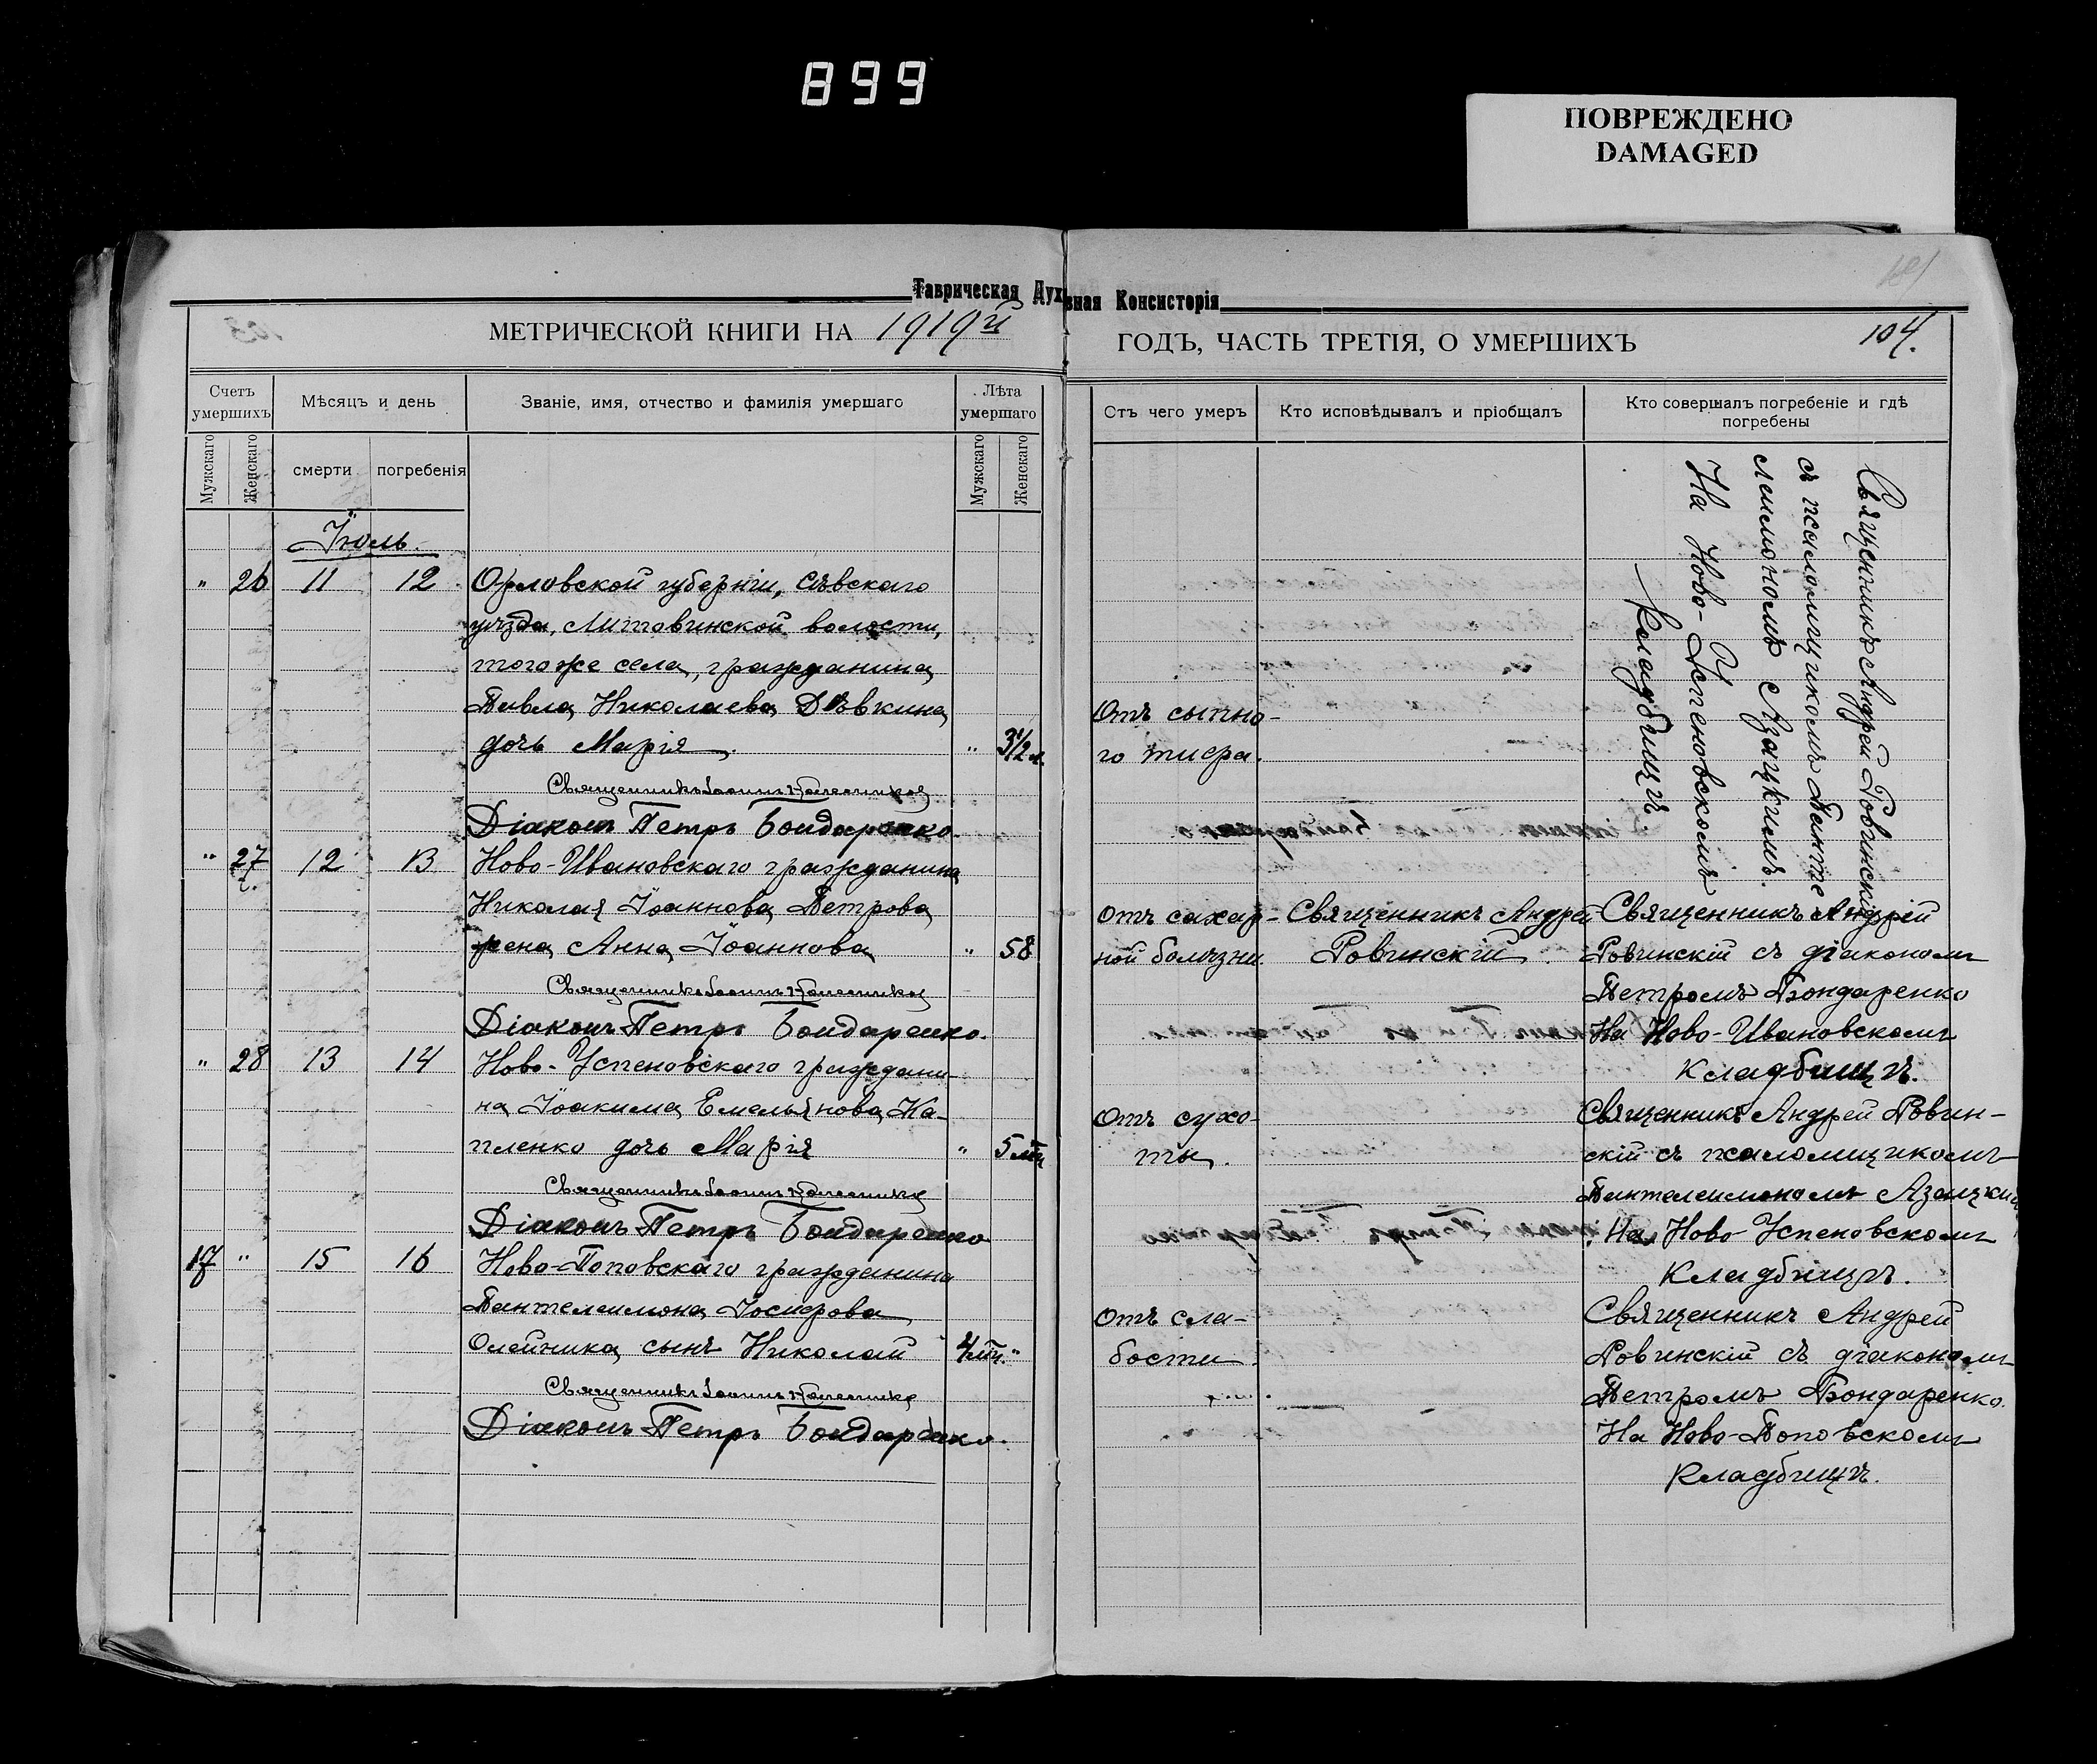 899
ПОВРЕЖДЕНО
DAMAGED
Таврическая Духовная Консисторія
МЕТРИЧЕСКОЙ КНИГИ НА 1919й
ГОДЪ, ЧАСТЬ ТРЕТІЯ, О УМЕРШИХЪ
104.
Счетъ умершихъ
Мѣсяцъ и день
Званіе, имя, отчество и фамилія умершаго
Лѣта умершаго
Мужскаго
Женскаго
смерти
погребенія
Мужскаго
Женскаго
Отъ чего умеръ
Кто исповѣдывалъ и пріобщалъ
Кто совершалъ погребеніе и гдѣ погребены
Іюль.
" 26 11 12 Орловской губерніи, Сѣвскаго
уѣзда, Литовинской волости,
тогоже села, гражданина
Павла Николаева Дѣвкина
дочь Марія. " 3 1/2 л.
Отъ сыпно-
го тифа.
Священникъ Андрей Ровинскій
съ псаломщикомъ Панте
леимономъ Азацкимъ.
На Ново-Успеновскомъ
кладбищѣ
Священникъ Іоаннъ
Діаконъ Петръ Бондаренко
" 27 12 13 Ново-Ивановскаго гражданина
Николая Іоаннова Петрова
жена Анна Іоаннова " 58
Отъ сахар-
ной болѣзни.
Священникъ Андрей
Ровинскій.
Священникъ Андрей
Ровинскій съ діакономъ
Петромъ Бондаренко
На Ново-Ивановскомъ
кладбищѣ.
Священникъ Іоаннъ
Діаконъ Петръ Бондаренко.
" 28 13 14 Ново-Успеновскаго граждани-
на Іоакима Емельянова Ка-
пленко дочь Марія " 5 мц
Отъ сухо-
ты.
Священникъ Андрей Ровин-
скій съ псаломщикомъ
Пантелеимономъ Азацким
На Ново-Успеновскомъ
кладбищѣ.
Священникъ Іоаннъ
Діаконъ Петръ Бондаренко
17 " 15 16 Ново-Поповскаго гражданина
Пантелеимона Іосифова
Олейника сынъ Николай 4 мц. "
Отъ сла-
бости.
Священникъ Андрей
Ровинскій съ діакономъ
Петромъ Бондаренко.
На Ново-Поповскомъ
кладбищѣ.
Священникъ Іоаннъ
Діаконъ Петръ Бондаренко.